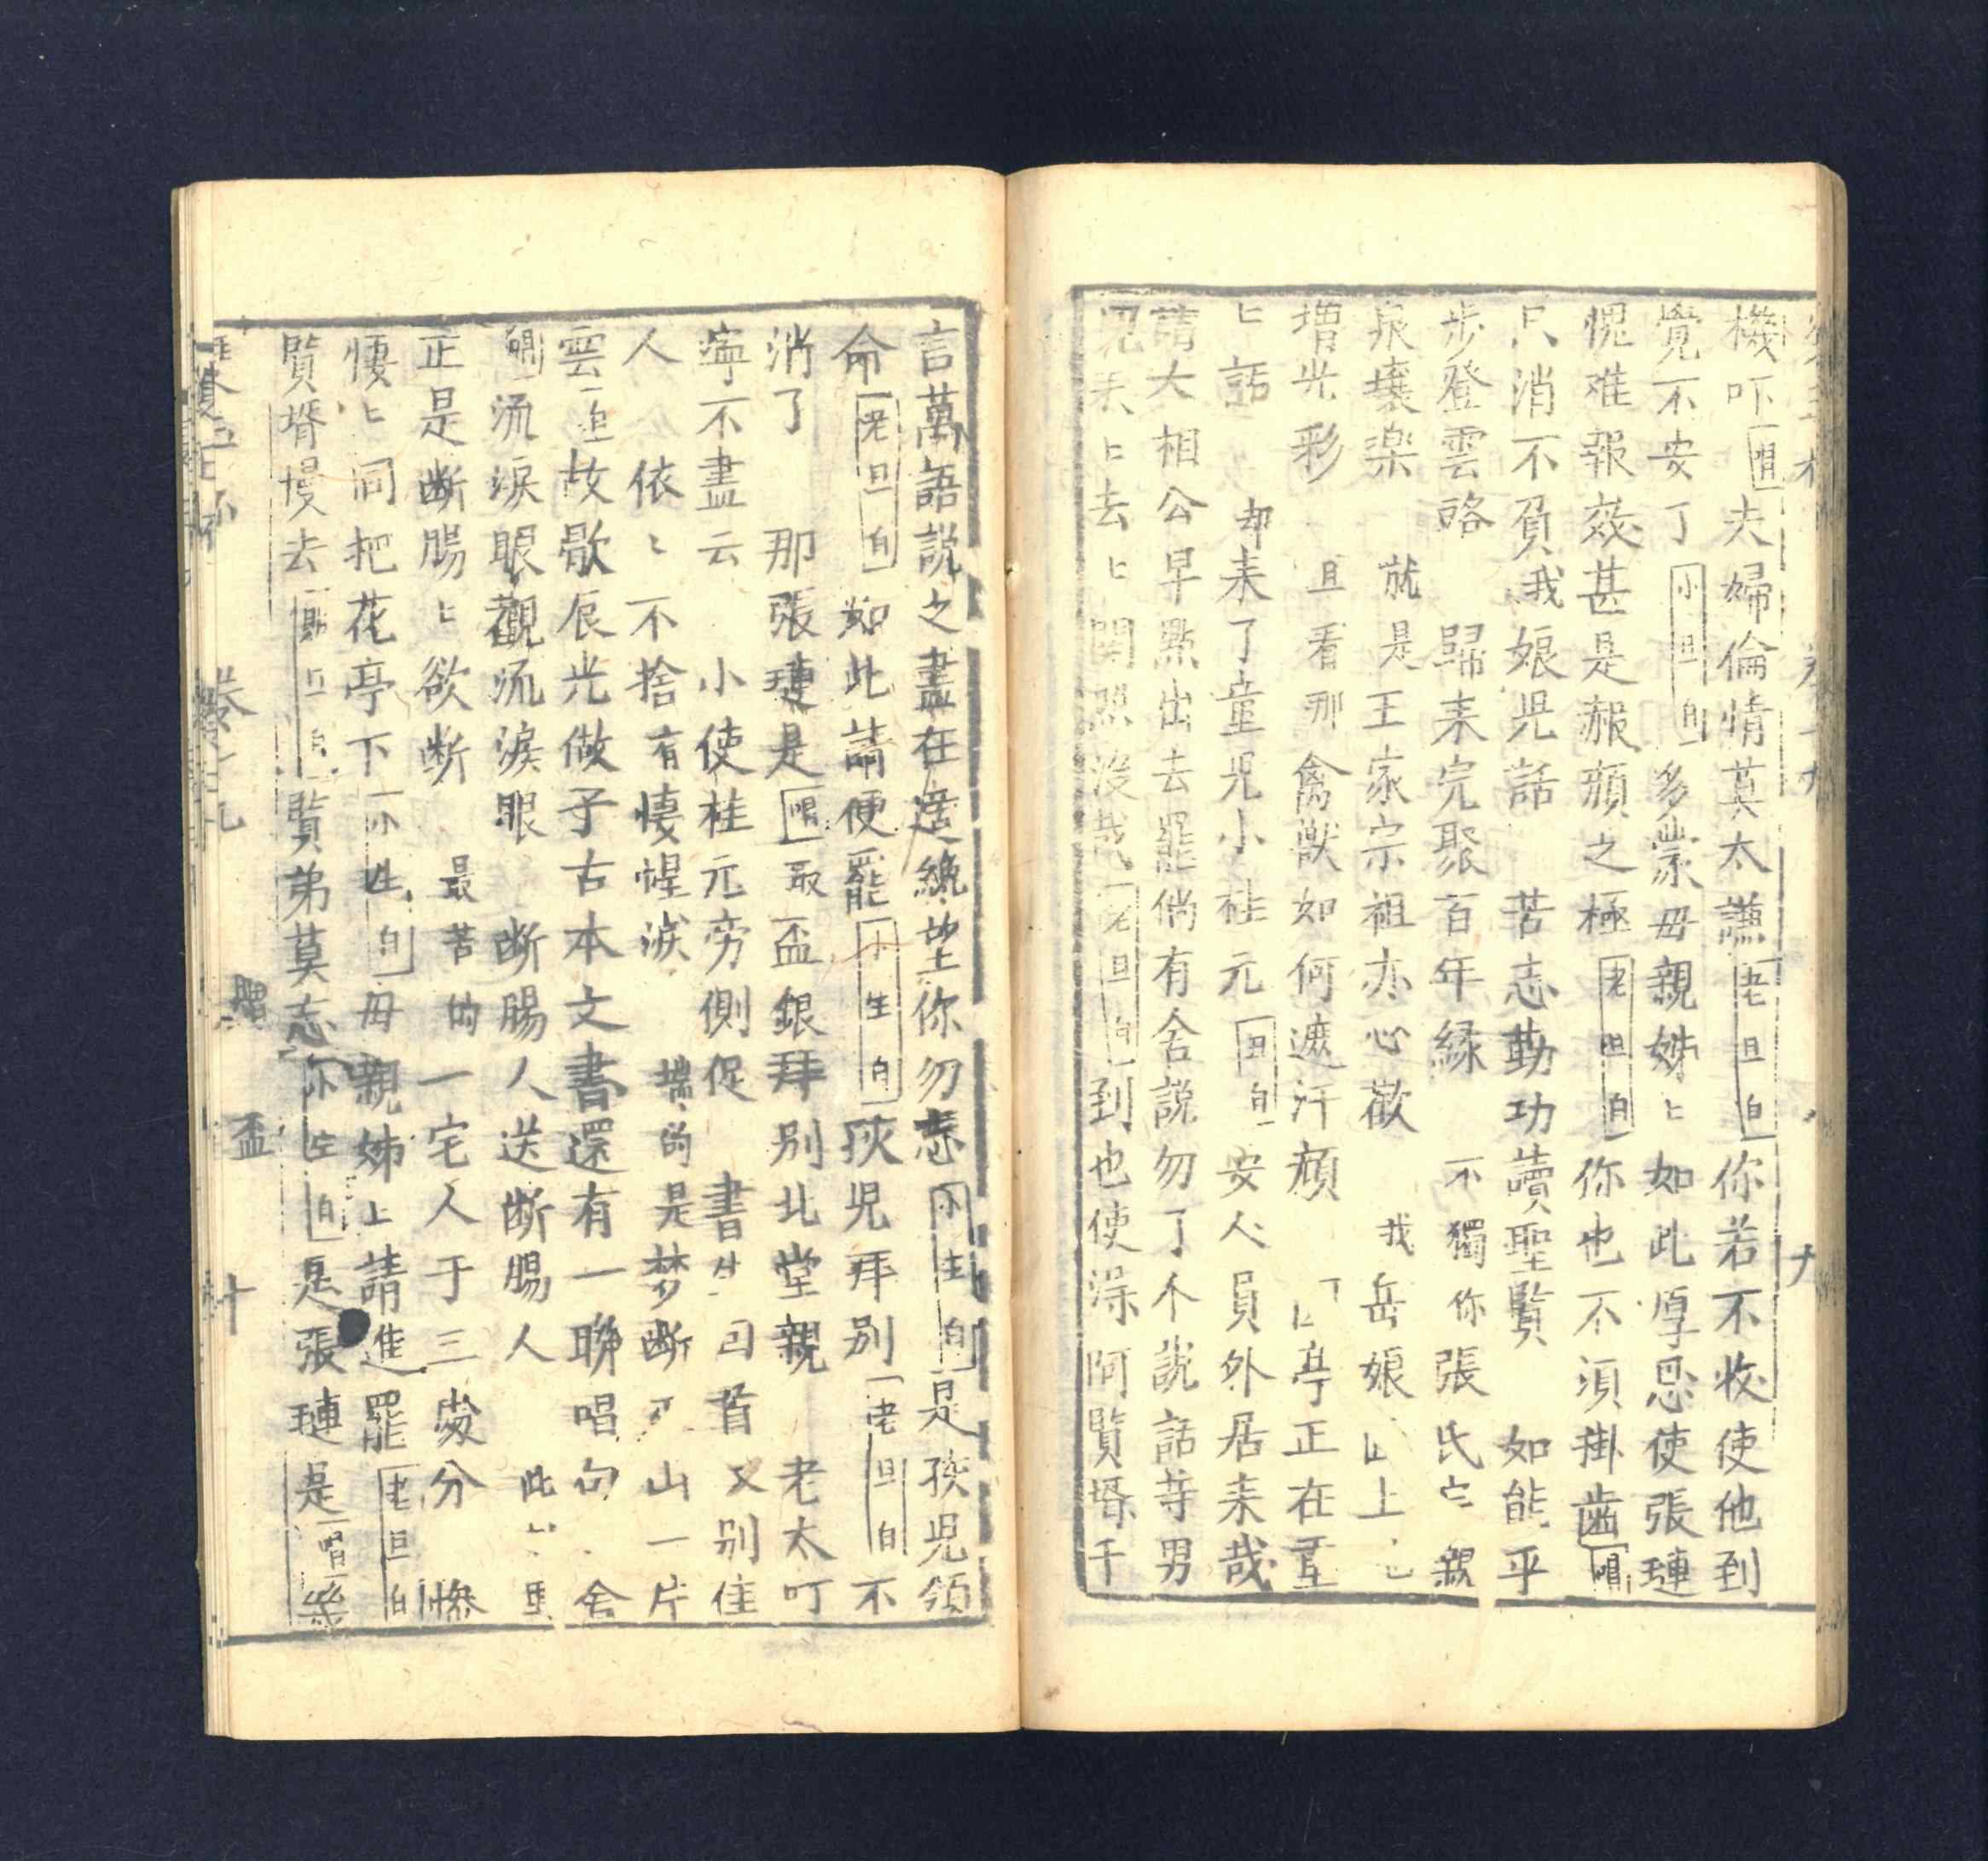 機吓唱夫婦倫情莫太謙老旦白你若不收使他到
覺不安了小旦白多蒙毋親姊ヒ如此厚恩使張璉
愧难報效甚是赧顔之極老旦白你也不須掛齒唱
只消不負我娘児話 苦志勤功讀聖賢 如能乎
步登雲路 歸来完聚百年緣 不獨你張氏 親
泉壤楽 就是王家宗祖亦心歡 我岳娘 上
增光彩 且看那禽獸如何遮汗顔 亭正在
ヒ話 却来了童児小桂元旦白安人員外居来哉
請大相公早點出去罷倘有舍説勿了个説話等男
児去ヒ去ヒ関照没哉老旦白到也使淂阿賢壻千
言萬語説之盡在 望你勿忘小生白是孩児領
命老旦白如此請便罷小生白孩児拜別老旦白不
消了 那張璉是唱取盃銀拜別北堂親 老太叮
寧不盡云 小使桂元旁側促 書生回首又別佳
人 依ヒ不捨有悽惶淚 端的是梦断 山一片
雲 故歇辰光做子古本文書還有一聨唱句 舍
流淚眼觀流淚眼 断腸人送断腸人 此
正是断腸ヒ欲断 最苦的一宅人于三處分 惨
悽ヒ同把花亭下小生白毋親姊上請進罷老旦白
賢壻慢去 賢弟莫忘小生白是張璉是唱幾
卷 十